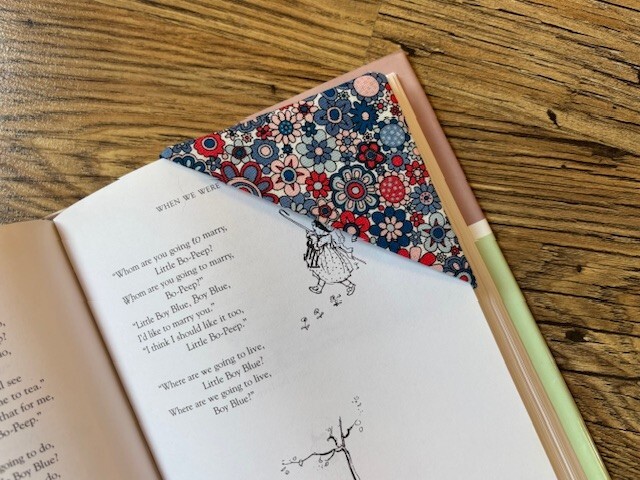 see
to tea."
that for me,
o-Peep."
going to do,
Blue?
do,
WHEN WE WERE
"Whom are you going to marry,
Little Bo-Peep?
Whom are you going to marry,
Bo-Peep?"
"Little Boy Blue, Boy Blue,
I'd like to marry you."
"I think I should like it too,
Little Bo-Peep."
"Where are we going to live,
Little Boy Blue?
Where are we going to live,
Boy Blue?"